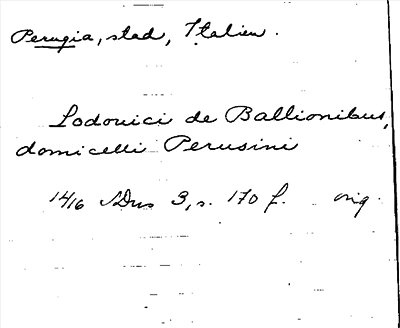 Perugia, stad, Italien.
Lodouici de Ballionibus,
domicelli Perusini
1416 SDns 3, s. 170 f. orig.